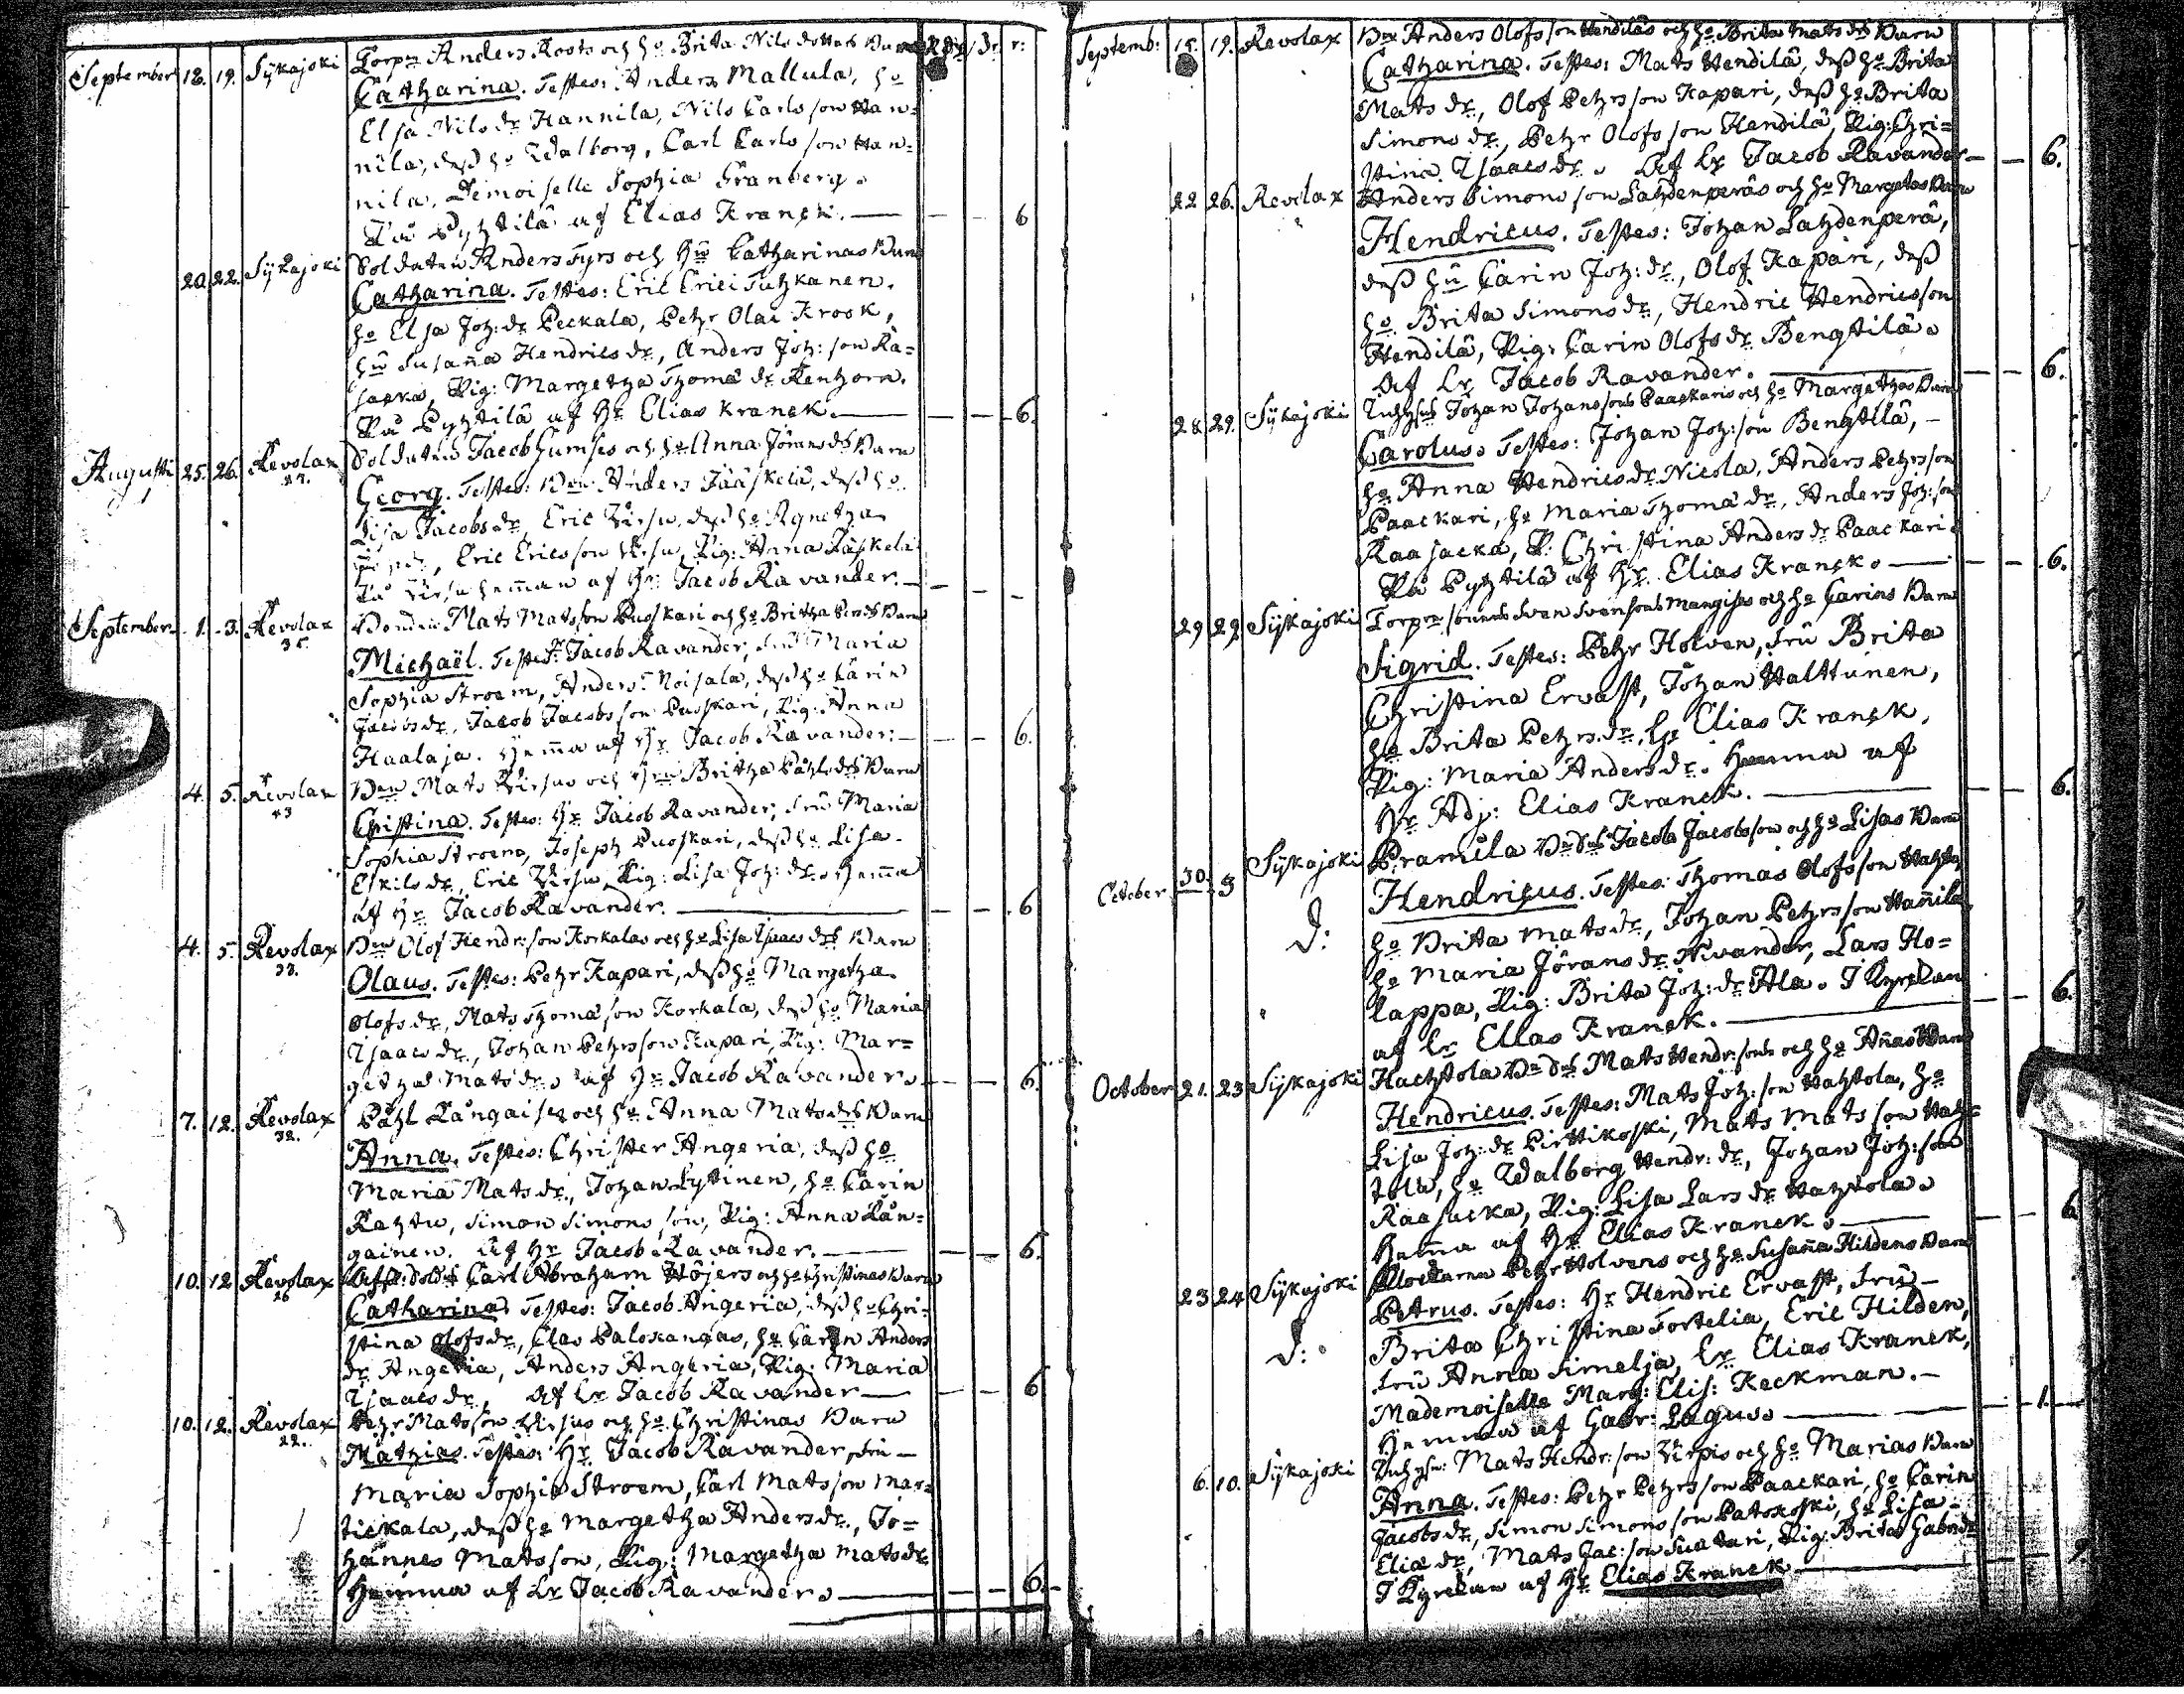 September 18. 19. Sÿkajoki Torpn Anders Roots och ho Brita Nils dotters Barn
Catharina. Testes: Anders Mallula, ho
Elsa Nils dr Hannila, Nils Carls son Han=
nila, dess ho Walborg, Carl Carls son Han=
nila, Demoiselle Sophia Granberg.
På Pyhtilä af Elias Kranck. — 6
20. 22. Sÿkajoki Soldaten Anders Fyrs och Hu Catharinas Barn
Catharina. Testes: Eric Erici Tuhkanen.
ho Elsa Joh: dr Peckala, Pehr Olai Krook,
hu Susanna Hendrics dr, Anders Joh: son Ra=
sacka, Pig: Margetha Thomæ dr Renhorn.
På Pyhtilä af Hr Elias Kranck. — 6.
Augusti 25. 26. Revolax Soldatens Jacob Gumses och ho Anna Jörans drs Barn
Georg. Testes: Bon: Anders Jääskelä, dess ho
Lisa Jacobs dr, Eric Wirsu, dess ho Agnetha
Eric Ericsson Wirsu, Pig: Anna Jäskelä
På Wirsu hemman af Hr: Jacob Ravander. —
September 1. 3. Revolax 35. Bonden Mats Matsson Puoskari och ho Britha Barn
Michaël. Testes: Hr Jacob Ravander, Fru Maria
Sophia Stroem, Anders Moisala, dess ho Carin
Jacobs dr, Jacob Jacobs son Puoskari, Pig: Anna
Haalaja. Hemma af Hr Jacob Ravander: — 6.
4. 5. Revolax 43 Bon Mats Wirsus och Hu Britha Påhls drs Barn
Cristina. Testes: Hr Jacob Ravander, Fru Maria
Sophia Stroem, Joseph Puoskari, dess ho Lisa
Eskils dr, Eric Wirsu, Pig: Lisa Joh: dr. Hemma
af Hr Jacob Ravander. — 6
4. 5. Revolax 33. Bon Olof Hendr: son Korkalas och ho Lisa Isaacs drs Barn
Olaus. Testes: Pehr Kapari, dess ho Margetha
Olofs dr, Mats Thomæ son Korkala, dess ho Maria
Isaacs dr, Johan Pehrs son Kapari, Pig: Mar=
getha Mats dr. af Hr Jacob Ravander. — 6.
7. 12. Revolax 32. Påhl Långaises och ho Anna Mats drs Barn
Anna. Testes: Christer Angeria, dess ho
Maria Mats dr, Johan Lytinen, ho Carin
Rahtu, Simon Simons son, Pig: Anna Lån=
gainen. Af Hr Jacob Ravander. — 6.
10. 12 Revolax 26 Carl Abraham Höjers och ho Christinas Barn
Catharina. Testes: Jacob Angeria, dess ho Chri=
stina Olofs dr, Clas Palokangas, ho Carin Anders
dr Angeria, Anders Angeria, Pig: Maria
Isaacs dr, af Lr Jacob Ravander — 6
10. 12. Revolax 22. Pehr Matsson Wirsus och ho Christinas Barn
Mathias. Testes: Hr Jacob Ravander, Fru —
Maria Sophia Stroem, Carl Mats son Mar=
tickala, dess ho Margetha Anders dr, Jo=
hannes Matsson, Pig: Margetha Mats dr.
Hemma af Lr Jacob Ravander. — 6.
Septemb: 15. 19. Revolax Bon Anders Olofs son Hendiläs och ho Brita Mats drs Barn
Catharina. Testes: Mats Hendilä, dess ho Brita
Mats dr, Olof Pehrsson Kapari, dess ho Brita
Simons dr, Pehr Olofs son Hendilä, Pig: Chri=
stina Isaacs dr. Af Lr Jacob Ravander — 6.
22 26. Revolax Anders Simons son Lahdenperäs och ho Margetas Barn
Hendricus. Testes: Johan Lahdenperä,
dess hu Carin Joh: dr, Olof Kapari, dess
ho Brita Simons dr, Hendric Hendricsson
Hendilä, Pig: Carin Olofs dr Bengtilä.
Af Lr Jacob Ravander. — 6.
28 29. Sÿkajoki Inhyss Johan Johanssons Paackaris och ho Margethas Barn
Carolus. Testes: Johan Joh: son Bengtilä, —
ho Anna Hendrics dr Nicola, Anders Pehrsson
Paackari, ho Maria Thomæ dr, Anders Joh: son
Raasacka, P: Christina Anders dr Paackari.
På Pyhtilä af Hr Elias Kranck. — 6.
29 29 Sÿkajoki Torpn sonens Sven Svensons Mangises och ho Carins Barn
Sigrid. Testes: Pehr Holven, Fru Brita
Christina Ervast, Johan Walttunen,
ho Brita Pehrs dr, Hr Elias Kranck,
Pig: Maria Anders dr. Hemma af
Hr Adj: Elias Kranck. — 6.
October 30. 3 Sÿkajoki Pramila Jacob Jacobsson och ho Lisas Barn
Hendricus. Testes: Thomas Olofs son
D: ho Brita Mats dr, Johan Pehrs son Hannila,
ho Maria Jörans dr Nivander, Lars Ho=
lappa, Pig: Brita Joh: dr Ala. I Kyrkan
af Lr Elias Kranck. — 6.
October 21. 23 Sÿkajoki Hachtola Mats Hendr: sons och ho Annas Barn
Hendricus. Testes: Mats Joh: son Hahtola, ho
Lisa Joh: dr Pirttikoski, Mats Mats son Hah=
tola, ho Walborg Hendr: dr, Johan Joh: son
Raasacka, Pig: Lisa Lars dr Hahtola.
Hemma af Hr Elias Kranck. — 6
23 24 Sÿkajoki Klockarens Pehr Holvens och ho Susanna Hildens Barn
Petrus. Testes: Hr Hendric Ervast, Fru —
D: Brita Christina Fortelia, Eric Hilden,
Fru Anna Simelja, Lr Elias Kranck,
Mademoiselle Marg: Elis: Keckman. —
Hemma af Gabr: Lagus. — 1.
6. 10. Sÿkajoki Inhysn: Mats Hendr: son Wirpis och ho Marias Barn
Anna. Testes: Pehr Pehrsson Paackari, ho Carin
Jacobs dr, Simon Simons son Patokoski, ho Lisa
Eliæ dr, Mats Jac: son Suatari, Pig: Brita Gabr: dr
I Kyrckan af Hr Elias Kranck —